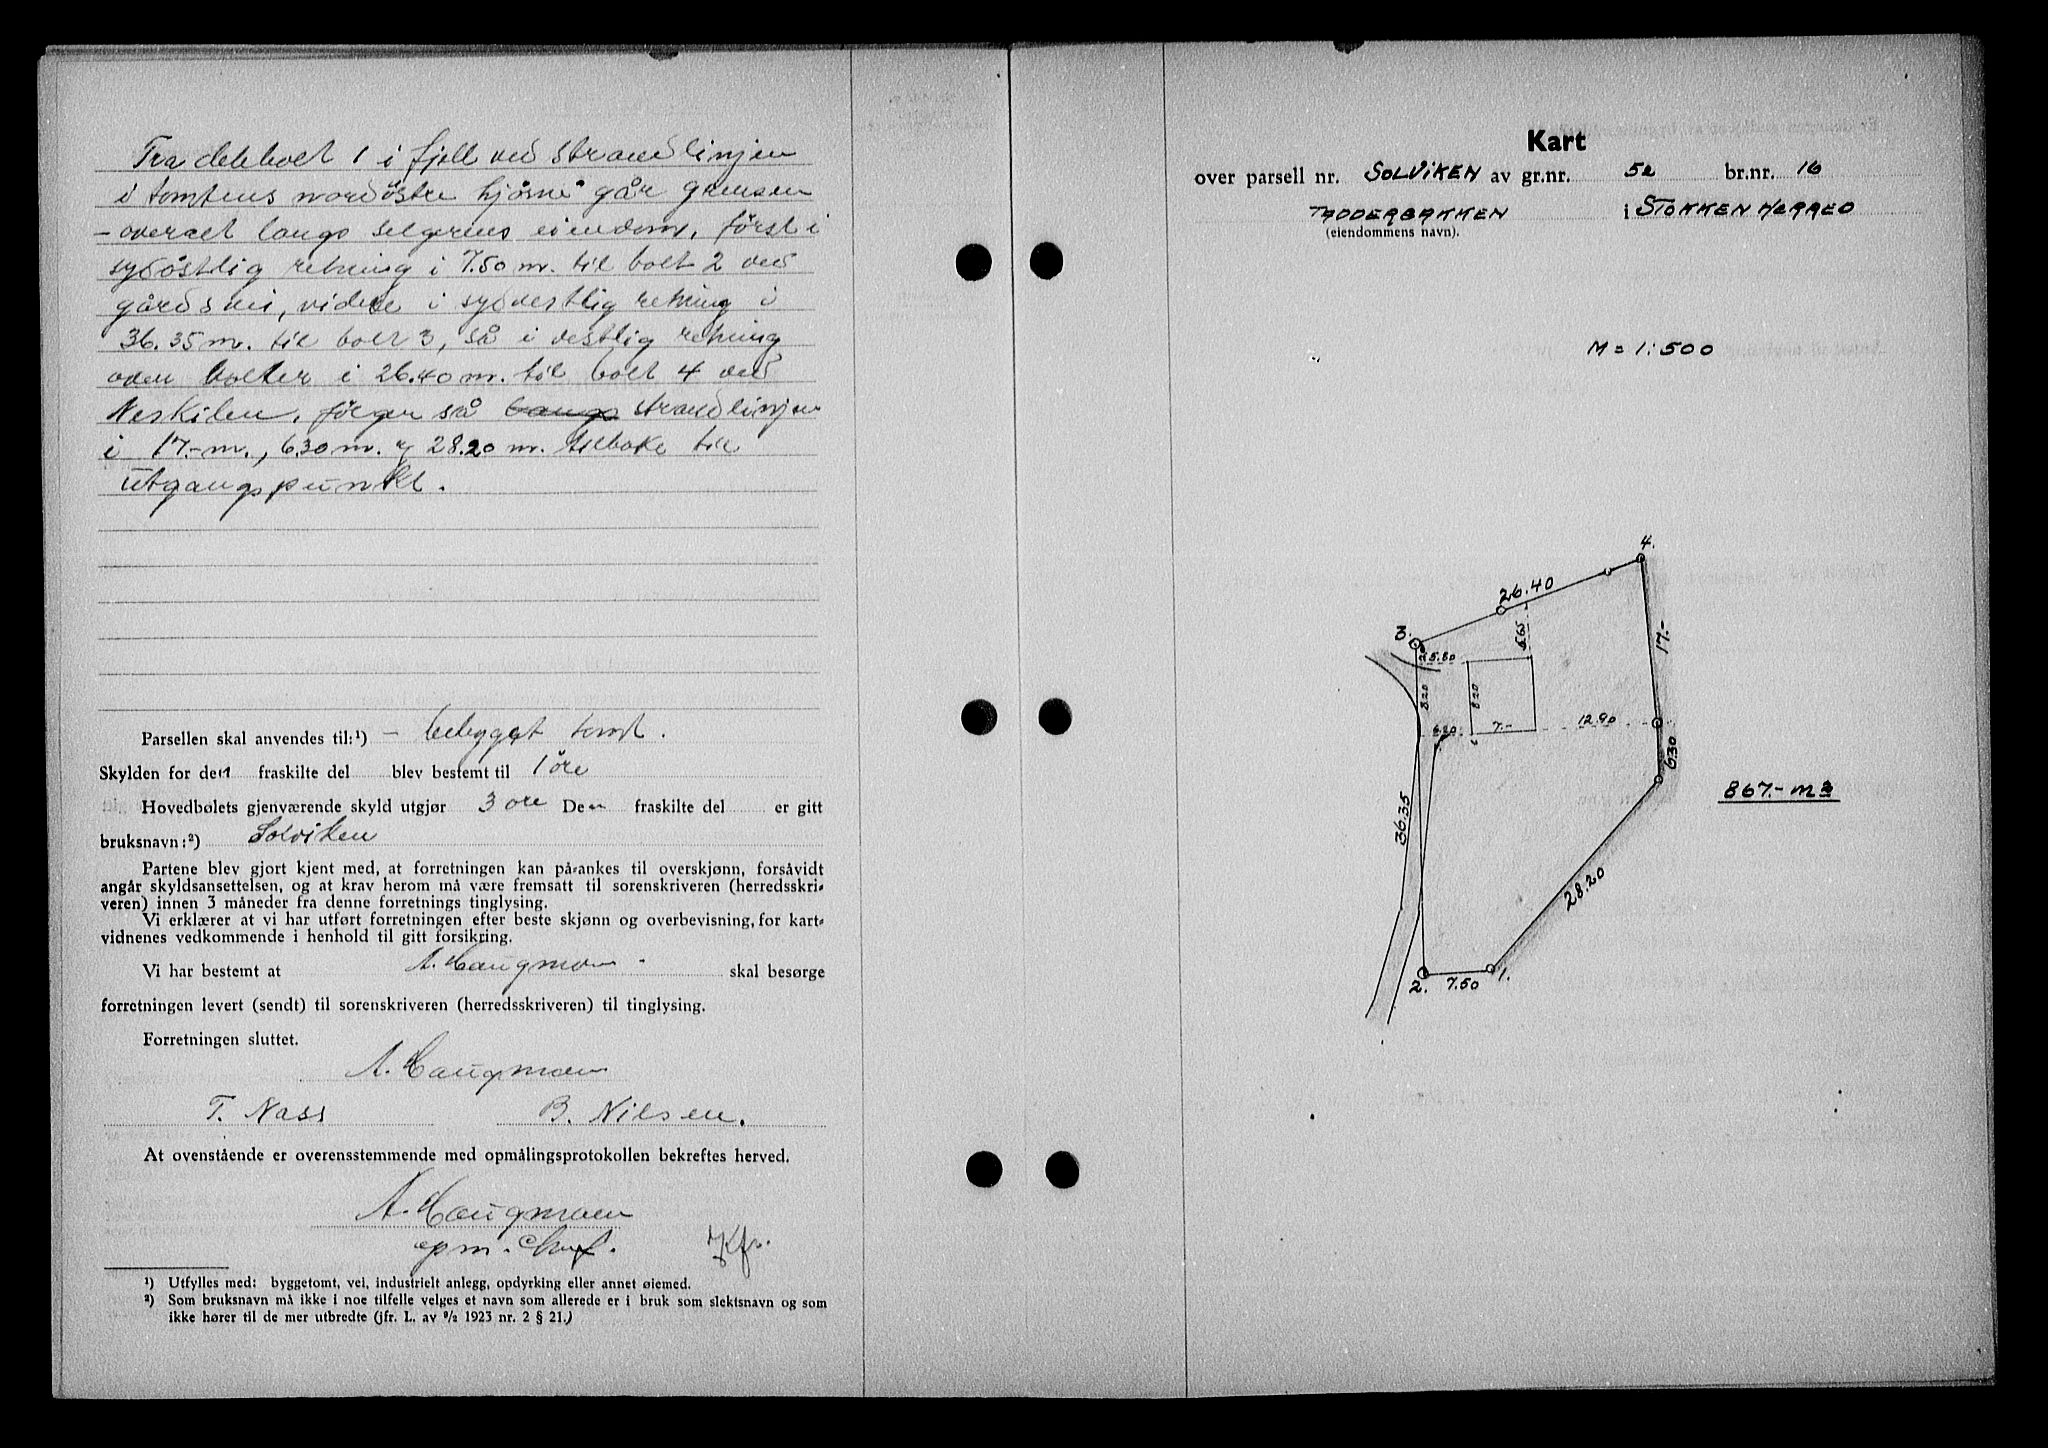 Fra delebolt 1 i fjell ved strandlinjen
i tomtens nordöstre hjörne går grensen
– overalt langs selgerens eiendom, först i
sydöstlig retning i 7.50 m. til bolt 2 ved
gårdsvei, videre i sydvestlig retning i
36.35 m. til bolt 3, så i vestlig retning
over bolter i 26.40 m. til bolt 4 ved
Neskilen, fölger så langs strandlinjen
i 17.- m., 6.30 m. og 28.20 m. tilbake til
utgangspunkt.
Parsellen skal anvendes til:¹) – bebygget tomt.
Skylden for den fraskilte del blev bestemt til 1 öre
Hovedbølets gjenværende skyld utgjør 3 öre Den fraskilte del er gitt
bruksnavn:²) Solviken
Partene blev gjort kjent med, at forretningen kan på-ankes til overskjønn, forsåvidt
angår skyldsansettelsen, og at krav herom må være fremsatt til sorenskriveren (herredsskri-
veren) innen 3 måneder fra denne forretnings tinglysing.
Vi erklærer at vi har utført forretningen efter beste skjønn og overbevisning, for kart-
vidnenes vedkommende i henhold til gitt forsikring.
Vi har bestemt at A. Haugmoen skal besørge
forretningen levert (sendt) til sorenskriveren (herredsskriveren) til tinglysing.
Forretningen sluttet.
A. Haugmoen
T. Nass B. Nilsen.
At ovenstående er overensstemmende med opmålingsprotokollen bekreftes herved.
A. Haugmoen
opm.
¹) Utfylles med: byggetomt, vei, industrielt anlegg, opdyrking eller annet øiemed.
²) Som bruksnavn må ikke i noe tilfelle velges et navn som allerede er i bruk som slektsnavn og som
ikke hører til de mer utbredte (jfr. L. av 9/2 1923 nr. 2 § 21.)
Kart
over parsell nr. SOLVIKEN av gr.nr. 52 br.nr. 16
TADDERBAKKEN i STOKKEN HERRED
(eiendommens navn).
M = 1:500
4.
26.40
3.
5.65
17.-
5.80
8.20
8.20
6.20
7.-
12.90
6.30
867.- m2
36.35
28.20
2.
7.50
1.